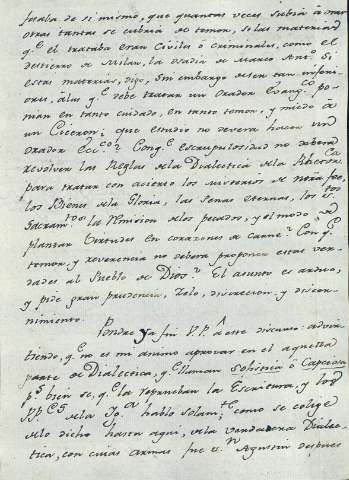 de si mismo, que quantas veces subia à
otras tantas se cubria de temor, si las materias
q.e el trataba eran Civiles ò criminales, como el
destierro de Milon, la osadia de Marco Ant.o Si
estas materias, digo, sin embargo de ser tan inferi-
ores, à las q.e debe tratar un Orador Evang.co po-
nian en tanto cuidado, en tanto temor, y miedo à
un Ciceron; que estudio no devera hacer un
Orador Ecc.co? Con q.e escrupulosidad no deberà
revolver las Reglas de la Dialectica de la Rhetor.ca
para tratar con acierto los misterios de nuestra fee,
los Bienes de la Gloria, las penas eternas, los
Sacram.tos la Remision de los pecados, y el modo de
plantar Virtudes en corazones de carne? Con q.e
temor, y reverencia no deberà proponer estas ver-
dades al Pueblo de Dios? El asunto es arduo,
y pide gran prudencia, zelo, discrecion, y discer-
nimiento.
Pondre ya fin P.P. à este discurso advir-
tiendo, q.e no es mi animo aprovar en el aquella
parte de Dialectica, q.e llaman Sofistica ò Capciosa
p.s bien se, q.e la reprueban la Escritura, y los
P.P. de la Yg.a hablo solam.te como se colige
de lo dicho hasta aqui, de la verdadera Dialec-
tica, con cuias armas fue S.n Agustin despues